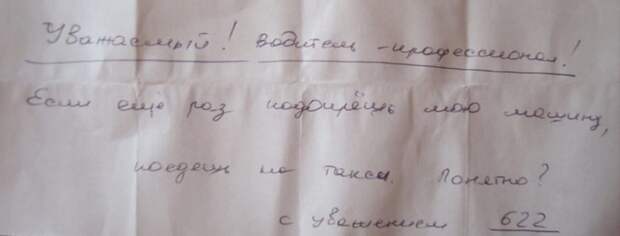 Уважаемый! водитель-профессионал!
Если ещё раз подопрёшь мою машину,
поедешь на такси. Понятно?
с уважением 622